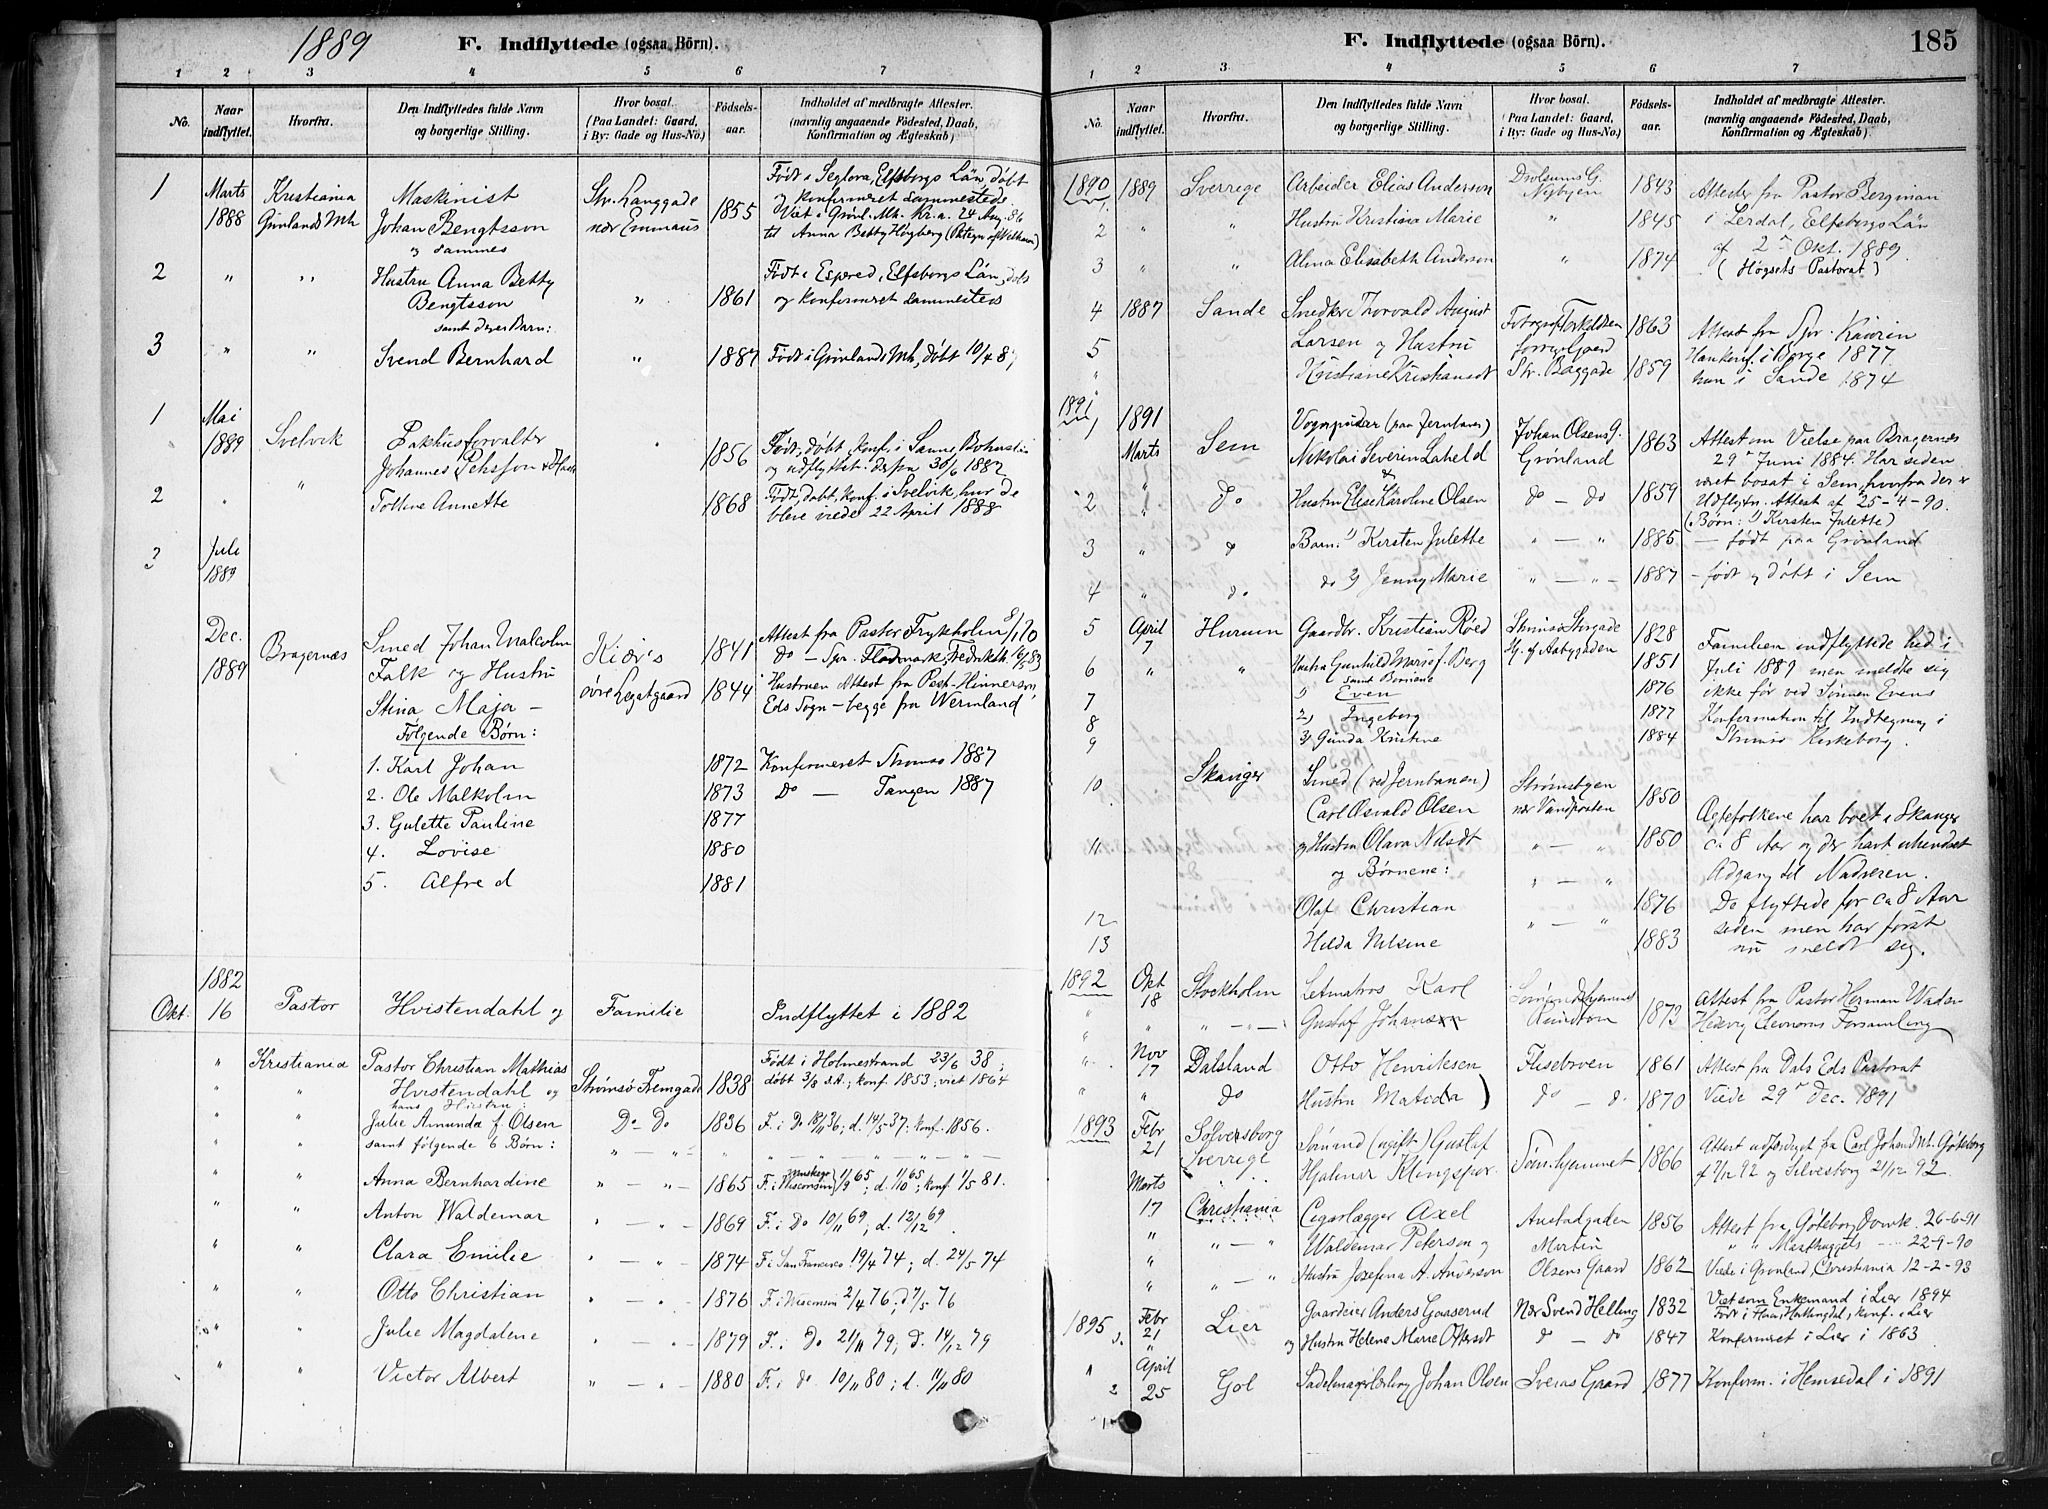 1889
F. Indflyttede (ogsaa Börn).
1 2 3 4 5 6 7
No.
Naar indflyttet.
Hvorfra.
Den Indflyttedes fulde Navn og borgerlige Stilling.
Hvor bosat. (Paa Landet: Gaard, i By: Gade og Hus-No.)
Födsels-aar.
Indholdet af medbragte Attester. (navnlig angaaende Födested, Daab, Konfirmation og Ægteskab)
1 Marts Kristiania Maskinist Str. Langgade Födt i Seglora, Elfsborgs Län, döbt
1888 Grönlands Mh Johan Bengtsson nær Emmaus 1855 og konfirmeret sammesteds.
Viet i Grönl. Mh. Kr.a. 24 Aug. 86
og sammes til Anna Betty Högberg
2 " " Hustru Anna Betty Födt i Espered, Elfsborgs Län, döbt
Bengtsson " 1861 og konfirmeret sammesteds
samt deres Barn:
3 " " Svend Bernhard " 1887 Födt i Grönlands Mh, döbt 10/4 87
1 Mai
1889 Svelvik Pakhusforvalter 1856 Födt, döbt, konf. i Sanne Bohuslän
Johannes og udflyttet derfra 30/6 1882
2 " " Tolline Annette 1868 Födt, döbt, konf. i Svelvik, hvor de
bleve viede 22 April 1888
3 Juli
1889
Dec.
1889 Bragernæs Smed Johan Malcolm Kiør's 1841 Attest fra Pastor Frykholm 8/1 70
Falk og Hustru övre Legatgaard 1844 Do - Spr. Flodmark, Fredriksh. 16/5 83
Stina Maja - Hustruen Attest fra Past. Hinnerson,
Eds Sogn - begge fra Wermland
Følgende Børn:
1. Karl Johan 1872 Konfirmeret Strømsø 1887
2. Ole Malkolm 1873 Do - Tangen 1887
3. Gulette Pauline 1877
4. Lovise 1880
5. Alfred 1881
1882
Okt. 16 Pastor Hvistendahl og Familie Indflyttet i 1882
" Kristiania Pastor Christian Mathias Födt i Holmestrand 23/6 38;
" " Hvistendahl og Strømsø Tremgade 1838 döbt 3/8 s.A.; konf. 1853; viet 1864
hans Hustru:
" " Julie Amunda f. Olsen Do Do 1836 F. i Do 18/11 36; d. 14/5 37; konf. 1856.
" " samt følgende 6 Børn: " - " -
" " Anna Bernhardine " - " - 1865 F. i Muskego Wisconsin 1/9 65; d. 1/10 65; konf. 1/5 81.
" " Anton Waldemar " - " 1869 F. i Do 10/11 69; d. 12/12 69
" " Clara Emilie " - " 1874 F. i San Francisco 19/4 74; d. 24/5 74
" " Otto Christian " - " 1876 F. i Wisconsin 2/4 76; d. 7/5 76
" " Julie Magdalene " - " 1879 F. i Do 21/11 79; d. 14/12 79
" " Victor Albert " - " 1880 F. i do 10/11 80; d. 11/11 80
F. Indflyttede (ogsaa Börn).
185
1 2 3 4 5 6 7
No.
Naar indflyttet.
Hvorfra.
Den Indflyttedes fulde Navn og borgerlige Stilling.
Hvor bosat. (Paa Landet: Gaard, i By: Gade og Hus-No.)
Födsels-aar.
Indholdet af medbragte Attester. (navnlig angaaende Födested, Daab, Konfirmation og Ægteskab)
1890 1889 Sverrige Arbeider Elias Anderson Nybyen 1843 Attest fra Pastor Bergman
1.
2 " " Hustru Kristina Marie " 1845 i Lerdal, Elfsborgs Län
af 2' Okt. 1889
3 " " Alma Elisabeth Anderson " 1874 (Högsets Pastorat)
4 1887 Sande Snedker Thorvald August Fotograf Torkildsen 1863 Attest fra Spr.
5 Larsen og Hustru Han konf. i Borge 1877
" Kristiane Kristiansdt Str. Baggade 1859 hun i Sande 1874
1891
1 1891 Vognpudser (paa Jernbanen) Johan Olsens G. 1863 Attest om Vielse paa Bragernæs
Marts Sem Nikolai Severin Laheld Grønland 29' Juni 1884. Har siden
& været bosat i Sem, hvorfra der er
2 " Do Hustru Elise Karoline Olsen do - do 1859 Udflytn. Attest af 25-4-90.
(Børn: 1) Kirsten Julette)
3 " " Barn: 1) Kirsten Julette " - " 1885 - födt paa Grønland
4 " do do 2) Jenny Marie " - " 1887 - födt og döbt i Sem
5 April 7 Hurum Gaardbr. Kristian Røed Strømsø Storgade 1828 Familien indflyttede hid i
6 " " Hustru Gunhild Marie f. Berg Hj. af Aabygaden 1851 Juli 1889 men meldte sig
samt Børnene
7 1) Even 1876 ikke før ved Sønnen Evens
8 2) Ingeborg 1877 Konfirmation til Indtegning i
9 3) Gunda Kristine 1884 Strømsø Kirkebog.
10 Skavger Smed (ved Jernbanen) Strømsbyen 1850
Carl Osvald Olsen nær Vandposten Ægtefolkene har boet i Skanger
11 og Hustru Olava Nilsdt " - " 1850 c.a 8 Aar og der havt uhindret
og Børnene: " - " Adgang til Nadveren.
12 Olaf Christian " - " 1876 De flyttede for ca 8 Aar
13 Hilda Nilsine 1883 siden men har først
nu meldt sig.
1892 Okt 18 Stockholm Letmatros Karl 1873 Attest fra Pastor Herman Waden
" " " - " Gustaf Johansen Rundtom Hedvig Eleonoras Forsamling
" Nov 17 Dalsland Otto Henriksen Flisebroen 1861 Attest fra Dals Eds Pastorat
" " Do Hustru Matilda do - d. 1870 Viede 29' Dec. 1891
1893 Febr 21 Sölversborg Sømand (ugift) Gustaf Attest udfærdiget fra Carl Johans Mh. Göteborg
Sverrige Hjalmar Klingspor Sømhjemmet 1866 af 7/12 92 og Silvesborg 21/12 92.
Marts
17 Christiania Cigarlægger Axel 1856 Attest fra Göteborg Domk. 26-6-91
" " - " Waldemar Peterson og Martin " " Masthuggets - 22-9-90
" " - " Hustru Josefina A. Anderson Olsens Gaard 1862 Viede i Grønland, Christiania 12-2-93
1895 Febr Lier Gaardeier Anders Gaaserud Nær Svend Helling 1832 Viet som Enkemand i Lier 1894
1. 21 og Hustru Helene Marie Ottersdt d - do 1847 Konfirmeret i Lier i 1863
" April
2 25 Gol Sadelmagerlærling Johan Olsen Sveras Gaard 1877 Konfirm. i Hemsedal i 1891